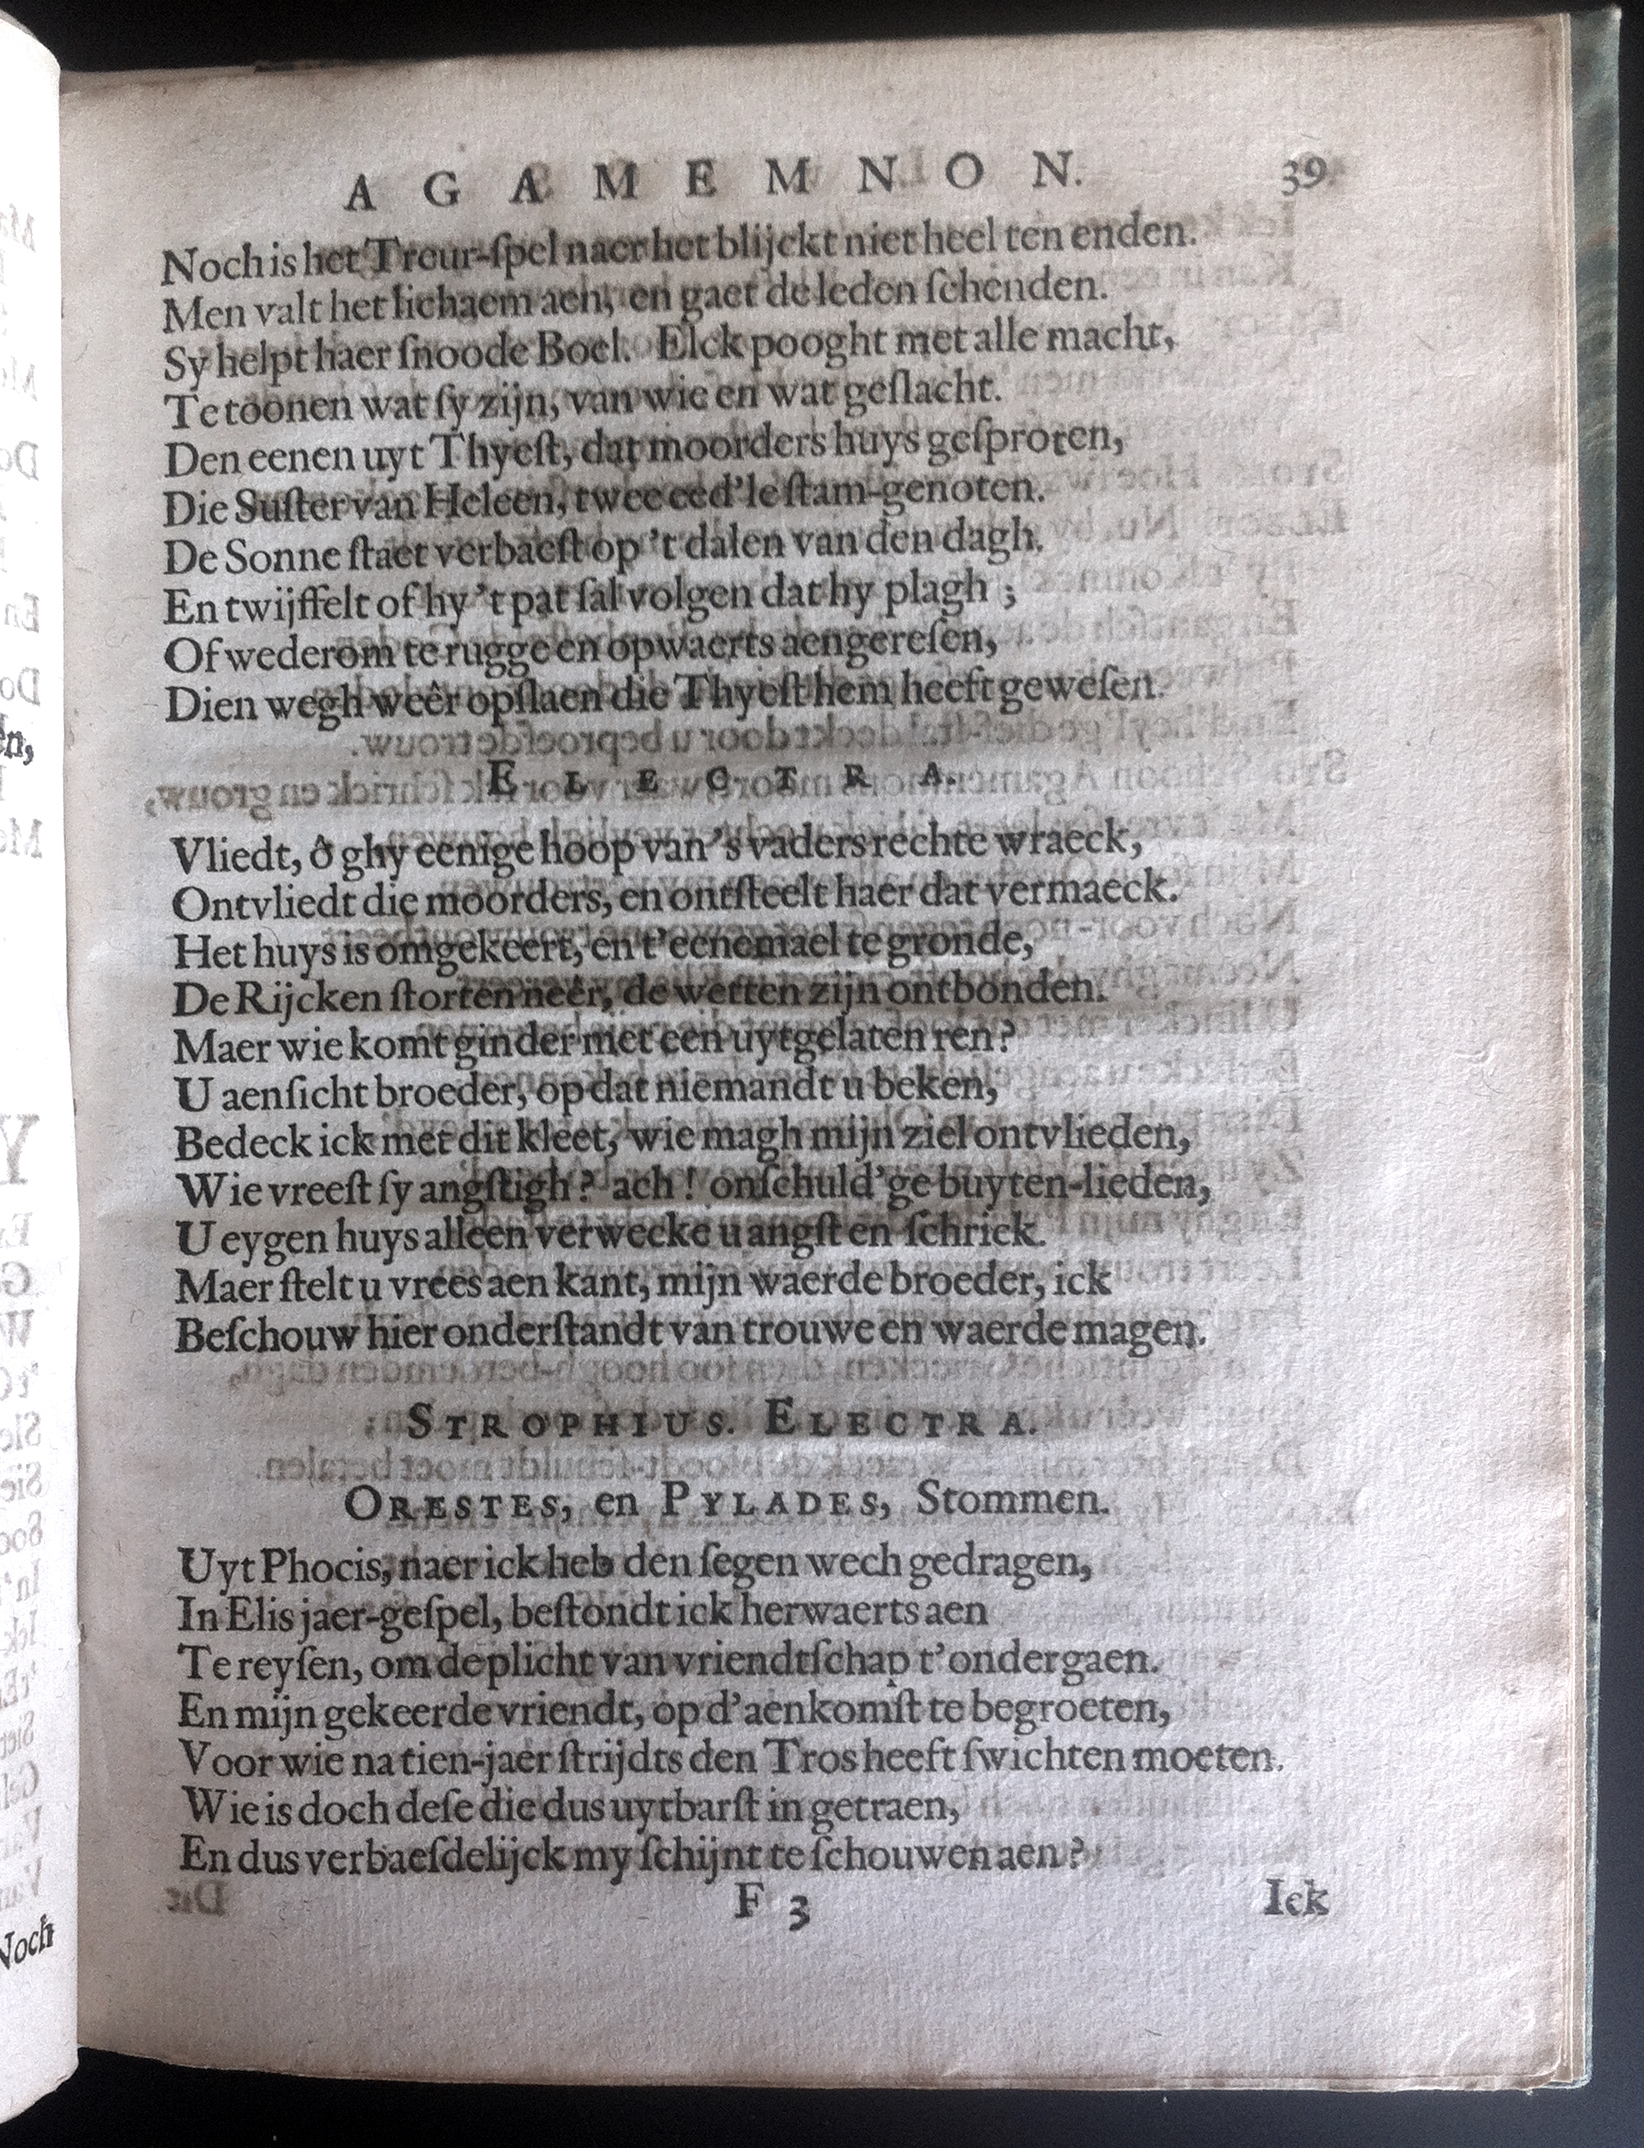 AGAMEMNON. 39
Noch is het Treur-ſpel naer het blijckt niet heel ten enden.
Men valt het lichaem aen, en gaet de leden ſchenden.
Sy helpt haer ſnoode Boel. Elck pooght met alle macht,
Te toonen wat ſy zijn, van wie en wat geſlacht.
Den eenen uyt Thyeſt, dat moorders huys geſproten,
Die Suſter van Heleen, twee eed'le ſtam-genoten.
De Sonne ſtaet verbaeſt op 't dalen van den dagh.
En twijffelt of hy 't pat ſal volgen dat hy plagh ;
Of wederom te rugge en opwaerts aengereſen,
Dien wegh weêr opſlaen die Thyeſt hem heeft geweſen.
ELECTRA.
Vliedt, ô ghy eenige hoop van 's vaders rechte wraeck,
Ontvliedt die moorders, en ontſteelt haer dat vermaeck.
Het huys is omgekeert, en t'eenemael te gronde,
De Rijcken ſtorten neêr, de wetten zijn ontbonden.
Maer wie komt ginder met een uytgelaten ren?
U aenſicht broeder, op dat niemandt u beken,
Bedeck ick met dit kleet, wie magh mijn ziel ontvlieden,
Wie vreeſt ſy angſtigh? ach! onſchuld'ge buyten-lieden,
U eygen huys alleen verwecke u angſt en ſchrick.
Maer ſtelt u vrees aen kant, mijn waerde broeder, ick
Beſchouw hier onderſtandt van trouwe en waerde magen.
STROPHIUS. ELECTRA.
ORESTES, en PYLADES, Stommen.
Uyt Phocis, naer ick heb den ſegen wech gedragen,
In Elis jaer-geſpel, beſtondt ick herwaerts aen
Te reyſen, om de plicht van vriendtſchap t'ondergaen.
En mijn gekeerde vriendt, op d'aenkomſt te begroeten,
Voor wie na tien-jaer ſtrijdts den Tros heeft ſwichten moeten.
Wie is doch deſe die dus uytbarſt in getraen,
En dus verbaeſdelijck my ſchijnt te ſchouwen aen?
F 3 Ick
en,
Noch